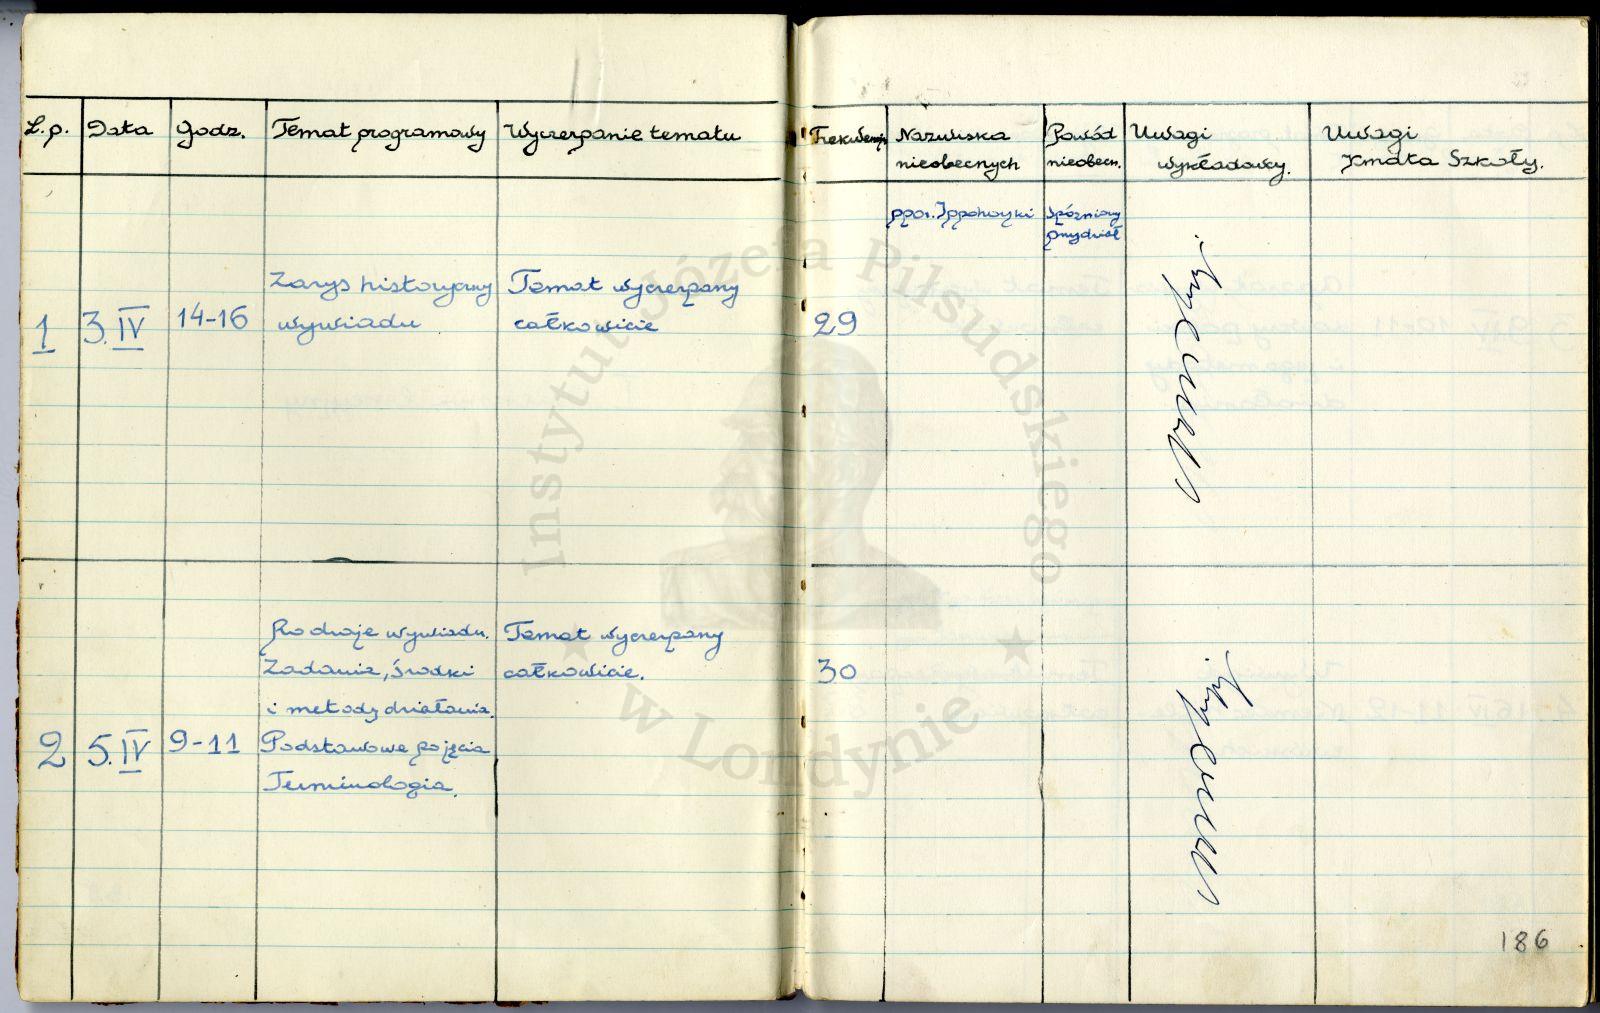 L.p. Data Godz. Temat programowy Wyczerpanie tematu Frekwencja Nazwiska nieobecnych Powód nieobecn. Uwagi wykładowcy. Uwagi Kmdta Szkoły.
ppor. Ippohorski
Spóźniony przydział
1 3.IV 14-16
Zarys historyczny
wywiadu
Temat wyczerpany
całkowicie
29
2 5.IV 9-11
Rodzaje wywiadu.
Zadania, środki
i metody działania.
Podstawowe pojęcia
Terminologia.
Temat wyczerpany
całkowicie.
30
186
Instytut Józefa Piłsudskiego
w Londynie